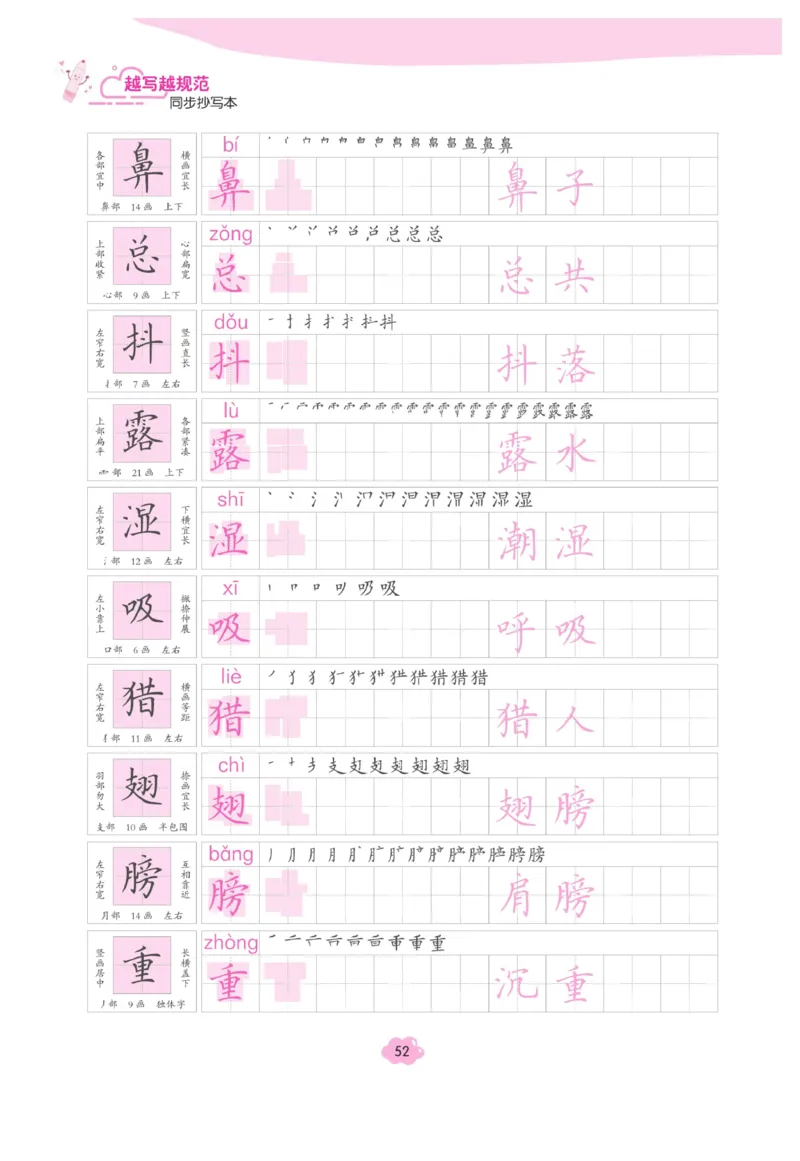 越写越规范
同步抄写本
各部宜中
鼻
横画宜长
鼻部 14画 上下
bí
鼻 鼻子
上部收紧
总
心部扁宽
心部 9画 上下
zǒng
总 总共
左窄右宽
抖
竖画直长
扌部 7画 左右
dǒu
抖 抖落
上部扁平
露
各部紧凑
⻗部 21画 上下
lù
露 露水
左窄右宽
湿
下横宜长
氵部 12画 左右
shī
湿 潮湿
左小靠上
吸
撇捺伸展
口部 6画 左右
xī
吸 呼吸
左窄右宽
猎
横画等距
犭部 11画 左右
liè
猎 猎人
羽部勿大
翅
捺画宜长
支部 10画 半包围
chì
翅 翅膀
左窄右宽
膀
互相靠近
月部 14画 左右
bǎng
膀 肩膀
竖画居中
重
长横盖下
丿部 9画 独体字
zhòng
重 沉重
52